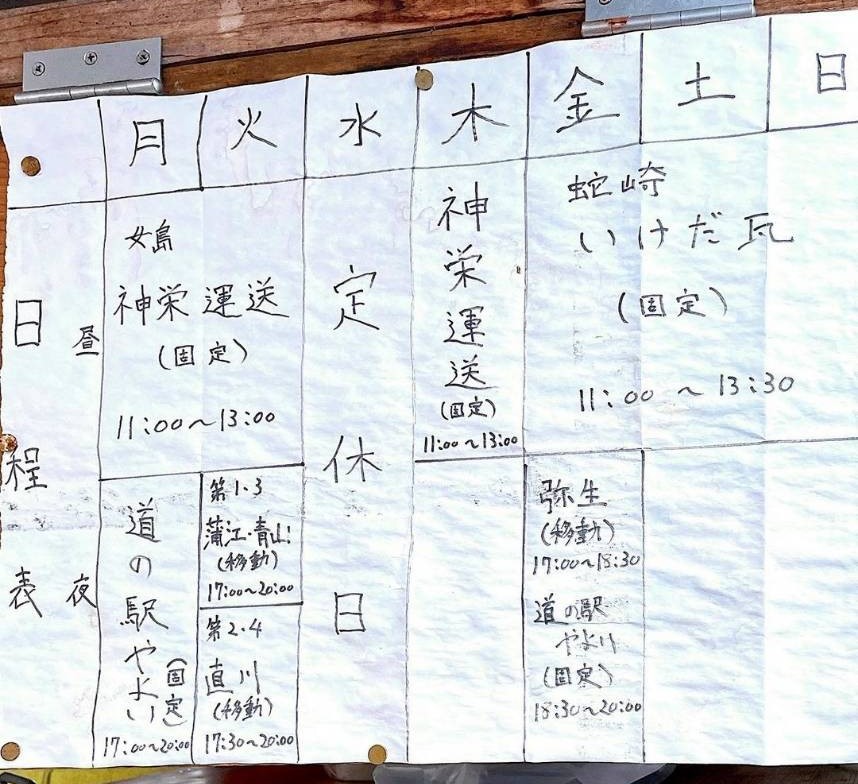 月 火 水 木 金 土 日
日程表
昼
夜
女島
神栄運送
(固定)
11:00〜13:00
定休日
神栄運送
(固定)
11:00〜13:00
蛇崎
いけだ瓦
(固定)
11:00〜13:30
道の駅やよい
(固定)
17:00〜20:00
第1・3
蒲江・青山
(移動)
17:00〜20:00
第2・4
直川
(移動)
17:30〜20:00
弥生
(移動)
17:00〜18:30
道の駅
やよい
(固定)
18:30〜20:00